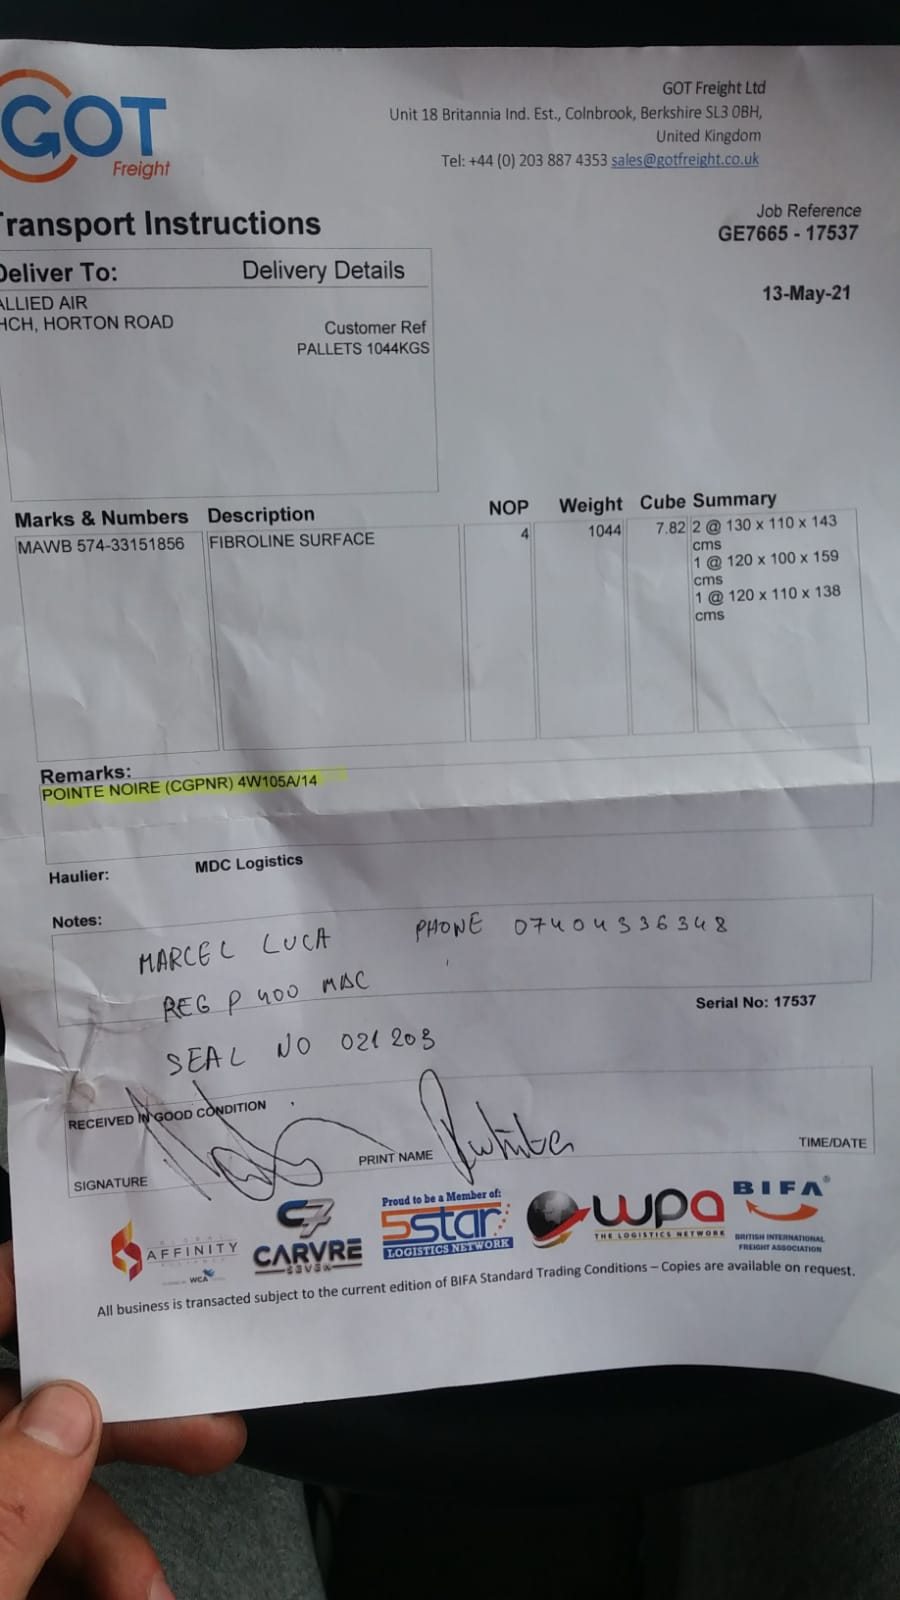 GOT
Freight
GOT Freight Ltd
Unit 18 Britannia Ind. Est., Colnbrook, Berkshire SL3 0BH,
United Kingdom
Tel: +44 (0) 203 887 4353 sales@gotfreight.co.uk
Transport Instructions
Job Reference
GE7665 - 17537
13-May-21
Deliver To: Delivery Details
ALLIED AIR
HCH, HORTON ROAD
Customer Ref
PALLETS 1044KGS
Marks & Numbers Description NOP Weight Cube Summary
MAWB 574-33151856 FIBROLINE SURFACE 4 1044 7.82 2 @ 130 x 110 x 143
cms
1 @ 120 x 100 x 159
cms
1 @ 120 x 110 x 138
cms
Remarks:
POINTE NOIRE (CGPNR) 4W105A/14
Haulier: MDC Logistics
Notes:
MARCEL LUCA PHONE 07404336348
REG P 400 MDC
Serial No: 17537
SEAL NO 021203
RECEIVED IN GOOD CONDITION
SIGNATURE PRINT NAME TIME/DATE
AFFINITY
WCA
C7
CARVRE
SEVEN
Proud to be a Member of:
5star
LOGISTICS NETWORK
wpa
THE LOGISTICS NETWORK
BIFA®
BRITISH INTERNATIONAL
FREIGHT ASSOCIATION
All business is transacted subject to the current edition of BIFA Standard Trading Conditions – Copies are available on request.